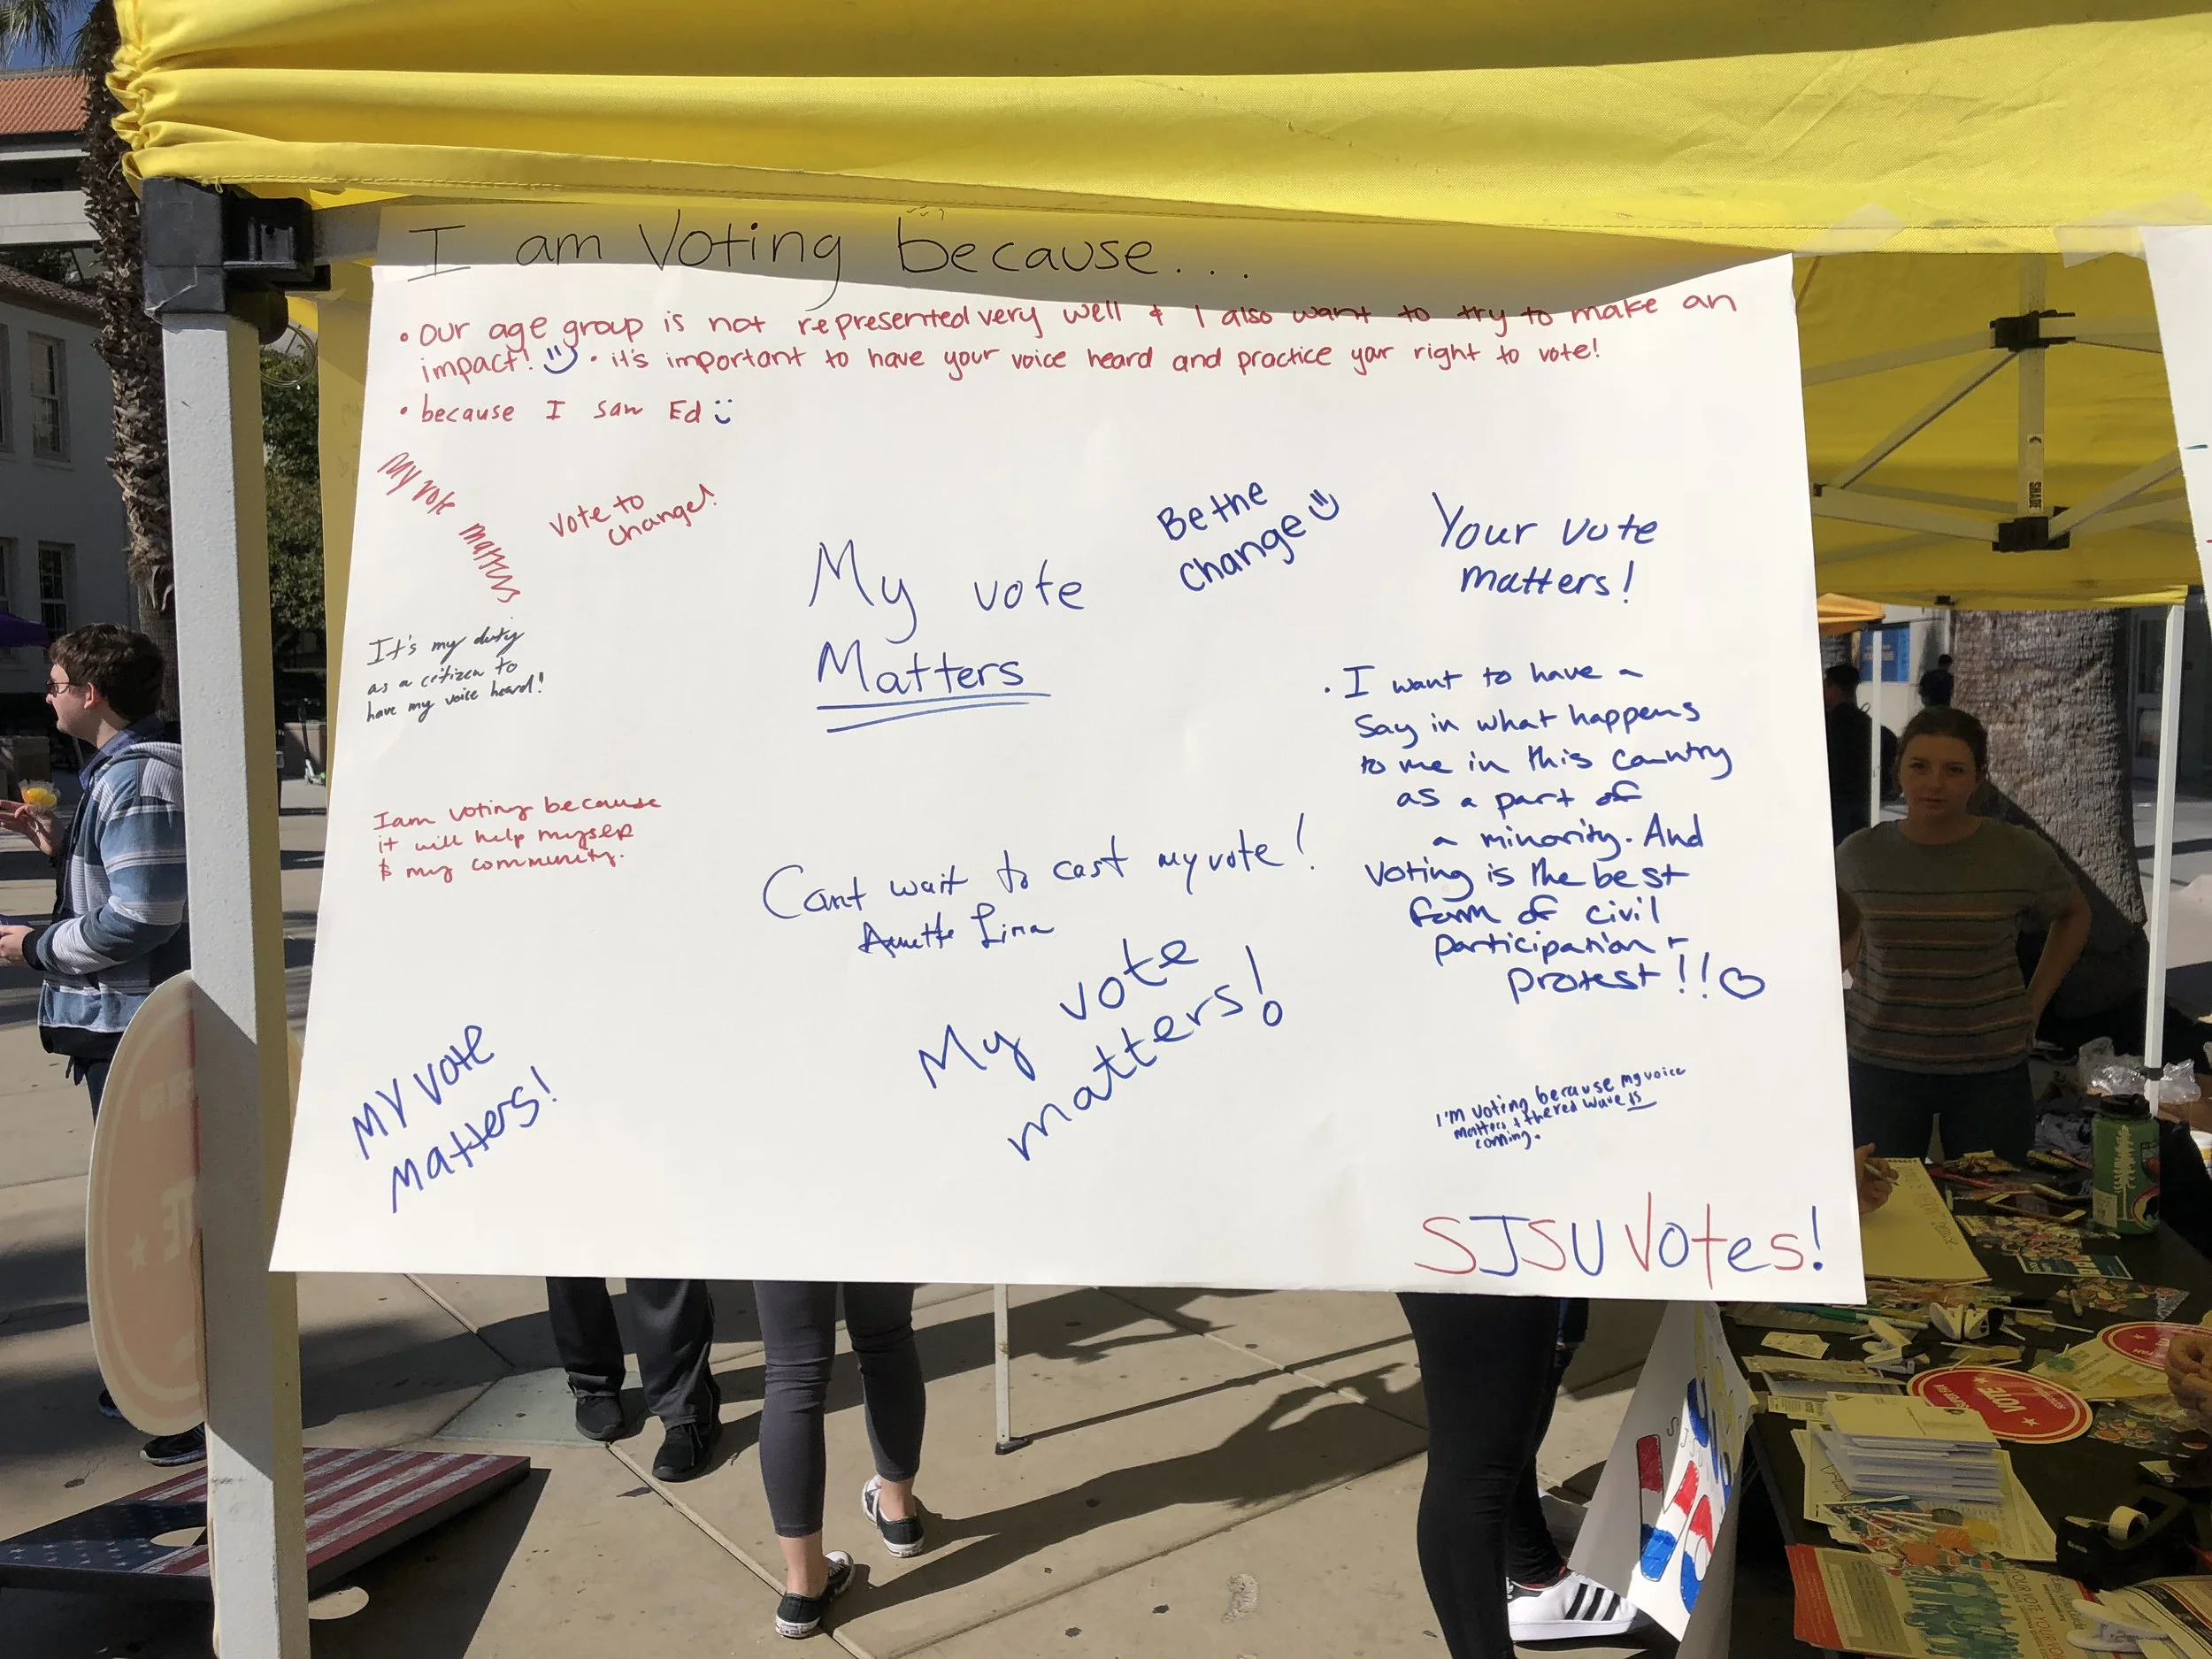 I am Voting because...
• Our age group is not represented very well & I also want to try to make an
impact! • it's important to have your voice heard and practice your right to vote!
• because I saw Ed
My vote matters
Vote to
change!
My vote
Matters
Be the
change
Your vote
matters!
It's my duty
as a citizen to
have my voice heard!
• I want to have a
say in what happens
to me in this country
as a part of
a minority. And
voting is the best
form of civil
participation +
protest!!
I am voting because
it will help myself
& my community.
Cant wait to cast my vote!
Annette Lima
My vote
matters!
MY VOTE
MATTERS!
I'm voting because my voice
matters & the red wave is
coming.
SJSU Votes!
SHADE
VOTE